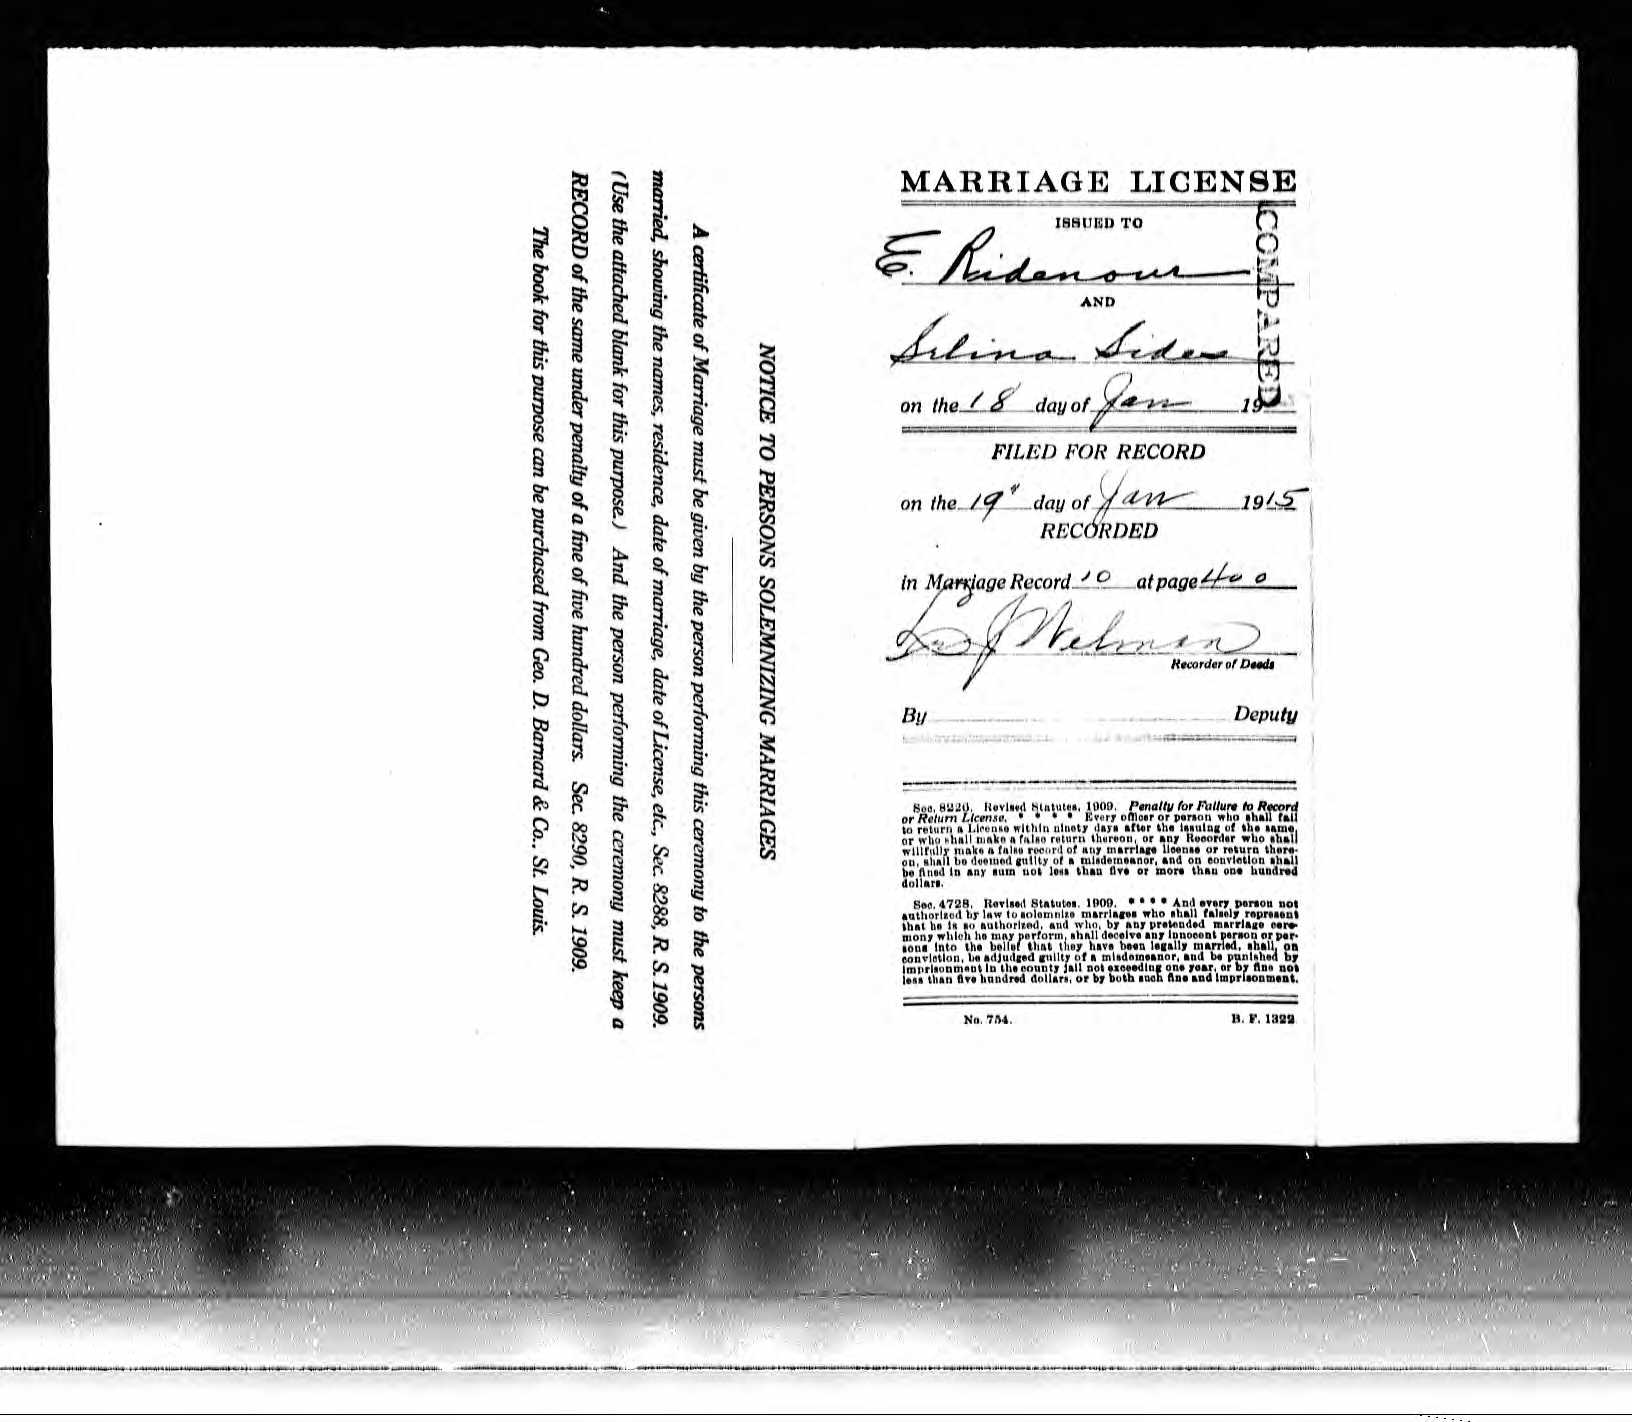 MARRIAGE LICENSE
ISSUED TO
E. Ridenour
AND
Selina Sides
COMPARED
on the 18 day of Jan 19
FILED FOR RECORD
on the 19" day of Jan 1915
RECORDED
in Marriage Record 10 at page 400
J Welman
Recorder of Deeds
By Deputy
Sec. 8220. Revised Statutes, 1909. Penalty for Failure to Record
or Return License. * * * * Every officer or person who shall fail
to return a License within ninety days after the issuing of the same,
or who shall make a false return thereon, or any Recorder who shall
willfully make a false record of any marriage license or return there-
on, shall be deemed guilty of a misdemeanor, and on conviction shall
be fined in any sum not less than five or more than one hundred
dollars.
Sec. 4728. Revised Statutes. 1909. * * * * And every person not
authorized by law to solemnize marriages who shall falsely represent
that he is so authorized, and who, by any pretended marriage cere-
mony which he may perform, shall deceive any innocent person or per-
sons into the belief that they have been legally married, shall, on
conviction, be adjudged guilty of a misdemeanor, and be punished by
imprisonment in the county jail not exceeding one year, or by fine not
less than five hundred dollars, or by both such fine and imprisonment.
No. 754. B. F. 1322
NOTICE TO PERSONS SOLEMNIZING MARRIAGES
A certificate of Marriage must be given by the person performing this ceremony to the persons
married, showing the names, residence, date of marriage, date of License, etc., Sec. 8288, R. S. 1909.
(Use the attached blank for this purpose.) And the person performing the ceremony must keep a
RECORD of the same under penalty of a fine of five hundred dollars. Sec. 8290, R. S. 1909.
The book for this purpose can be purchased from Geo. D. Barnard & Co., St. Louis.